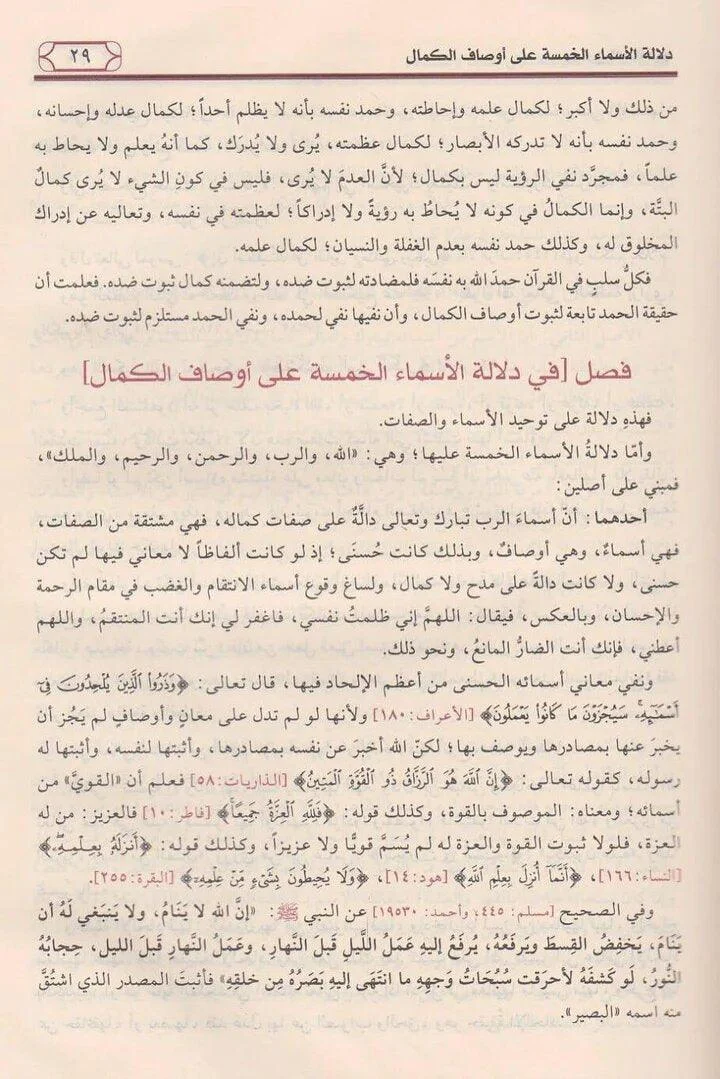 دلالة الأسماء الخمسة على أوصاف الكمال
٢٩
من ذلك ولا أكبر؛ لكمال علمه وإحاطته، وحمد نفسه بأنه لا يظلم أحداً؛ لكمال عدله وإحسانه،
وحمد نفسه بأنه لا تدركه الأبصار؛ لكمال عظمته، يُرى ولا يُدرَك، كما أنهُ يعلم ولا يحاط به
علماً، فمجرَّد نفي الرؤية ليس بكمال؛ لأنَّ العدمَ لا يُرى، فليس في كونِ الشيء لا يُرى كمالٌ
البتَّة، وإنما الكمالُ في كونه لا يُحاطُ به رؤيةً ولا إدراكاً؛ لعظمته في نفسه، وتعاليه عن إدراك
المخلوق له، وكذلك حمد نفسه بعدم الغفلة والنسيان؛ لكمال علمه.
فكلُّ سلبٍ في القرآن حمدَ الله به نفسَه فلمضادته لثبوت ضده، ولتضمنه كمال ثبوت ضده. فعلمت أن
حقيقة الحمد تابعة لثبوت أوصاف الكمال، وأن نفيها نفي لحمده، ونفي الحمد مستلزم لثبوت ضده.
فصل [في دلالة الأسماء الخمسة على أوصاف الكمال]
فهذهِ دلالة على توحيد الأسماء والصفات.
وأمّا دلالةُ الأسماء الخمسة عليها؛ وهي: «الله، والرب، والرحمن، والرحيم، والملك»،
فمبني على أصلين:
أحدهما: أنّ أسماءَ الرب تبارك وتعالى دالَّةٌ على صفات كماله، فهي مشتقة من الصفات،
فهي أسماءٌ، وهي أوصافٌ، وبذلك كانت حُسنَى؛ إذ لو كانت ألفاظاً لا معاني فيها لم تكن
حسنى، ولا كانت دالةً على مدح ولا كمال، ولساغ وقوع أسماء الانتقام والغضب في مقام الرحمة
والإحسان، وبالعكس، فيقال: اللهمَّ إني ظلمتُ نفسي، فاغفر لي إنك أنت المنتقمُ، واللهم
أعطني، فإنك أنت الضارُّ المانعُ، ونحو ذلك.
ونفي معاني أسمائه الحسنى من أعظم الإلحاد فيها، قال تعالى: ﴿وَذَرُوا۟ ٱلَّذِينَ يُلْحِدُونَ فِىٓ
أَسْمَـٰٓئِهِۦ سَيُجْزَوْنَ مَا كَانُوا۟ يَعْمَلُونَ﴾ [الأعراف: ١٨٠] ولأنها لو لم تدل على معانٍ وأوصافٍ لم يَجُز أن
يخبرَ عنها بمصادرها ويوصف بها؛ لكنّ الله أخبرَ عن نفسه بمصادرها، وأثبتها لنفسه، وأثبتها له
رسوله، كقوله تعالى: ﴿إِنَّ ٱللَّهَ هُوَ ٱلرَّزَّاقُ ذُو ٱلْقُوَّةِ ٱلْمَتِينُ﴾ [الذاريات: ٥٨] فعلم أن «القويَّ» من
أسمائه؛ ومعناه: الموصوف بالقوة، وكذلك قوله: ﴿فَلِلَّهِ ٱلْعِزَّةُ جَمِيعًا﴾ [فاطر: ١٠] فالعزيز: من له
العزة، فلولا ثبوت القوة والعزة له لم يُسَمَّ قويًّا ولا عزيزاً، وكذلك قوله: ﴿أَنزَلَهُۥ بِعِلْمِهِۦ﴾
[النساء: ١٦٦]، ﴿أَنَّمَآ أُنزِلَ بِعِلْمِ ٱللَّهِ﴾ [هود: ١٤]، ﴿وَلَا يُحِيطُونَ بِشَىْءٍ مِّنْ عِلْمِهِۦٓ﴾ [البقرة: ٢٥٥].
وفي الصحيح [مسلم: ٤٤٥، وأحمد: ١٩٥٣٠] عن النبي ﷺ: «إنَّ الله لا يَنَامُ، ولا يَنبَغي لَهُ أن
يَنَامَ، يَخفِضُ القِسطَ ويَرفَعُهُ، يُرفَعُ إليهِ عَمَلُ اللَّيلِ قَبلَ النَّهارِ، وعَمَلُ النَّهارِ قَبلَ الليلِ، حِجابُهُ
النُّورُ، لَو كَشَفَهُ لأحرَقَت سُبُحَاتُ وَجهِهِ ما انتَهَى إليهِ بَصَرُهُ مِن خلقِهِ» فأثبتَ المصدر الذي اشتُقَّ
منه اسمه «البصير».